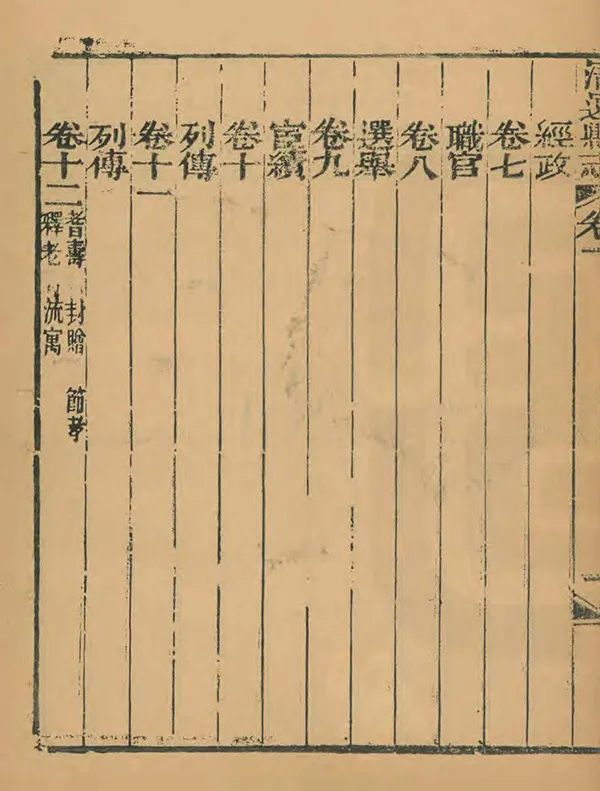 清遠縣志 卷一
經政
卷七
職官
卷八
選舉
卷九
宦績
卷十
列傳
卷十一
列傳
卷十二
耆壽 封贈 節孝
釋老 流寓